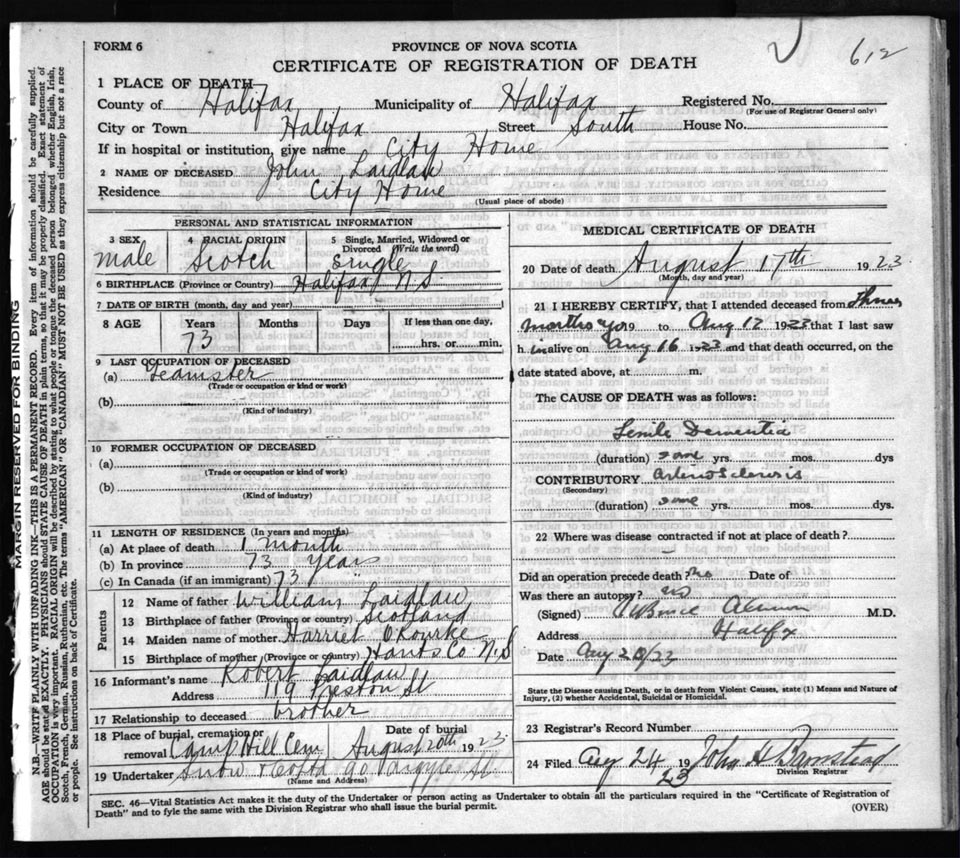 FORM 6
PROVINCE OF NOVA SCOTIA
612
CERTIFICATE OF REGISTRATION OF DEATH
1 PLACE OF DEATH
County of Halifax Municipality of Halifax Registered No.
(For use of Registrar General only)
City or Town Halifax Street South House No.
If in hospital or institution, give name City Home
2 NAME OF DECEASED John Laidlaw
Residence City Home
(Usual place of abode)
PERSONAL AND STATISTICAL INFORMATION
3 SEX 4 RACIAL ORIGIN 5 Single, Married, Widowed or Divorced (Write the word)
male Scotch single
6 BIRTHPLACE (Province or Country) Halifax N.S
7 DATE OF BIRTH (month, day and year)
8 AGE Years Months Days If less than one day,
73 hrs. or min.
9 LAST OCCUPATION OF DECEASED
(a) Teamster
(Trade or occupation or kind or work)
(b)
(Kind of industry)
10 FORMER OCCUPATION OF DECEASED
(a)
(Trade or occupation or kind of work)
(b)
(Kind of industry)
11 LENGTH OF RESIDENCE (In years and months)
(a) At place of death 1 month
(b) In province 73 years
(c) In Canada (if an immigrant) 73 "
Parents
12 Name of father William Laidlaw
13 Birthplace of father (Province or country) Scotland
14 Maiden name of mother Harriet O'Rourke
15 Birthplace of mother (Province or country) Hants Co N.S
16 Informant's name Robert Laidlaw
Address 119 Preston St
17 Relationship to deceased brother
18 Place of burial, cremation or removal Camp Hill Cem Date of burial August 20th 1923
19 Undertaker Snow & Co Ltd 90 Argyle St.
(Name and Address)
MEDICAL CERTIFICATE OF DEATH
20 Date of death August 17th 1923
(Month, day and year)
21 I HEREBY CERTIFY, that I attended deceased from three
months ago 19 to Aug 17 1923 that I last saw
h im alive on Aug 16 1923 and that death occurred, on the
date stated above, at m.
The CAUSE OF DEATH was as follows:
Senile Dementia
(duration) some yrs. mos. dys
CONTRIBUTORY Arterio Sclerosis
(Secondary)
(duration) some yrs. mos. dys.
22 Where was disease contracted if not at place of death?
Did an operation precede death? no Date of
Was there an autopsy? no
(Signed) Almon M.D.
Address Halifx
Date Aug 20/23
State the Disease causing Death, or in death from Violent Causes, state (1) Means and Nature of
Injury, (2) whether Accidental, Suicidal or Homicidal.
23 Registrar's Record Number
24 Filed Aug 24 1923 John H Barnstead
Division Registrar
SEC. 46—Vital Statistics Act makes it the duty of the Undertaker or person acting as Undertaker to obtain all the particulars required in the "Certificate of Registration of
Death" and to fyle the same with the Division Registrar who shall issue the burial permit.
(OVER)
MARGIN RESERVED FOR BINDING
N.B.—WRITE PLAINLY WITH UNFADING INK—THIS IS A PERMANENT RECORD. Every item of information should be carefully supplied.
AGE should be stated EXACTLY. PHYSICIANS should STATE CAUSE OF DEATH in plain terms so that it may be properly classified. Exact statement of
OCCUPATION is very important. RACIAL ORIGIN will be described by stating to what people or tongue the deceased person belonged whether English, Irish,
Scotch, French, German, Russian, Ruthenian, etc. The terms "AMERICAN" or "CANADIAN" MUST NOT BE USED as they express citizenship but not a race
or people. See instructions on back of Certificate.